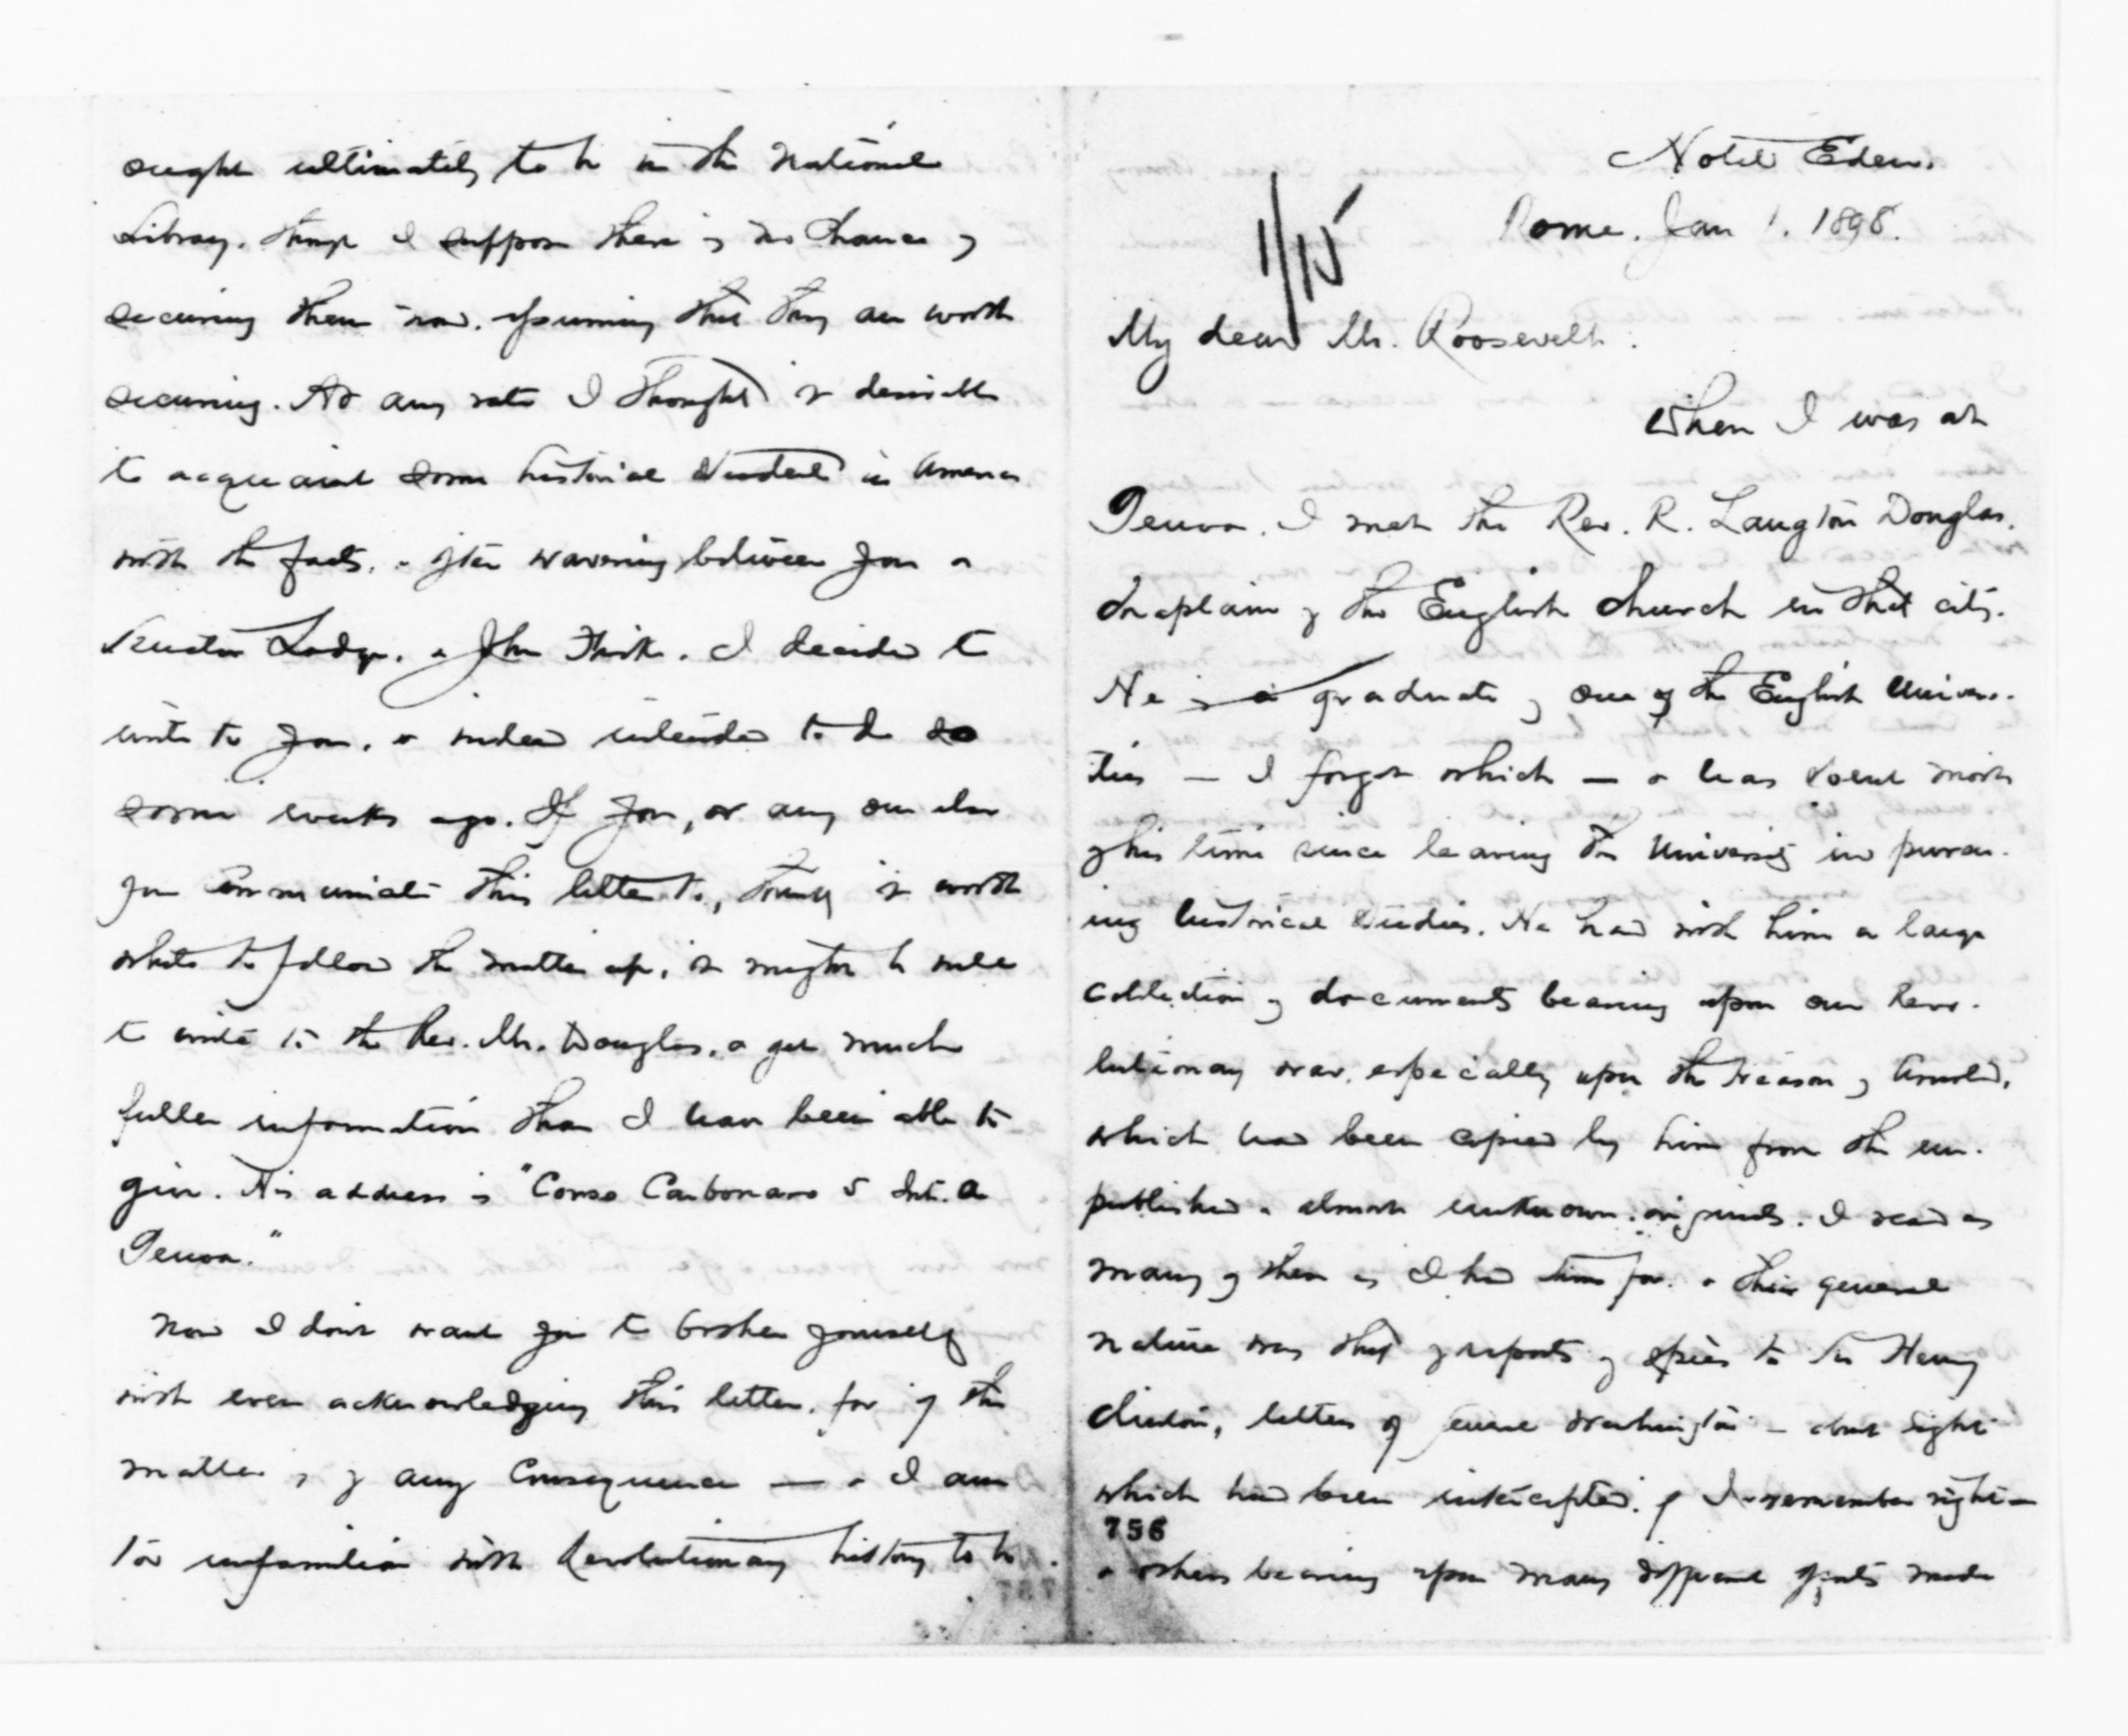 Hotel Eden.
Rome. Jan 1. 1898.
1/15
My dear Mr. Roosevelt:
When I was at
Genoa, I met the Rev. R. Langton Douglas,
chaplain of the English church in that city.
He is a graduate of one of the English Univers-
ities — I forget which — & has spent most
of his time since leaving the University in pursu-
ing historical studies. He had with him a large
collection of documents bearing upon our Revo-
lutionary war, especially upon the treason of Arnold,
which had been copied by him from the un-
published & almost unknown originals. I read as
many of them as I had time for, & their general
nature was that of reports of spies to Sir Henry
Clinton, letters of General Washington — about eight
which had been intercepted, if I remember right —
756
& others bearing upon many different efforts made
ought ultimately to be in the National
Library, though I suppose there is no chance of
securing them now, assuming that they are worth
securing. At any rate I thought it desirable
to acquaint some historical student in America
with the facts, & after wavering between you &
Senator Lodge, & John Fiske, I decided to
write to you, & indeed intended to do so
some weeks ago. If you, or any one else
you communicate this letter to, think it worth
while to follow the matter up, it might be well
to write to the Rev. Mr. Douglas, & get much
fuller information than I have been able to
give. His address is "Corso Carbonara 5 Int. a
Genoa."
Now I don't want you to bother yourself
with even acknowledging this letter, for if the
matter is of any consequence — & I am
too unfamiliar with Revolutionary history to be
757